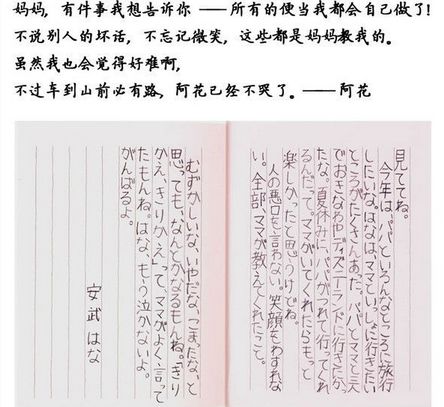 妈妈，有件事我想告诉你 ——所有的便当我都会自己做了!
不说别人的坏话，不忘记微笑，这些都是妈妈教我的。
虽然我也会觉得好难啊，
不过车到山前必有路，阿花已经不哭了。——阿花
見ててね。
今年は、パパといろんなところに旅行
したいな。はなは、ママといっしょに行きたい
ところがたくさんあった。パパとママと三人
でおきなわやディズニーランドに行きたかっ
たな。夏休みにパパがつれて行ってくれ
るんだって。ママがいてくれたらもっと
楽しかったと思うけどね。
人の悪口を言わない。笑顔をわすれな
い。全部、ママが教えてくれたこと。
むずかしいな、いやだな、こまったな、と
思っても、なんとかなるもんね。きり
かえ、きりかえ。って、ママがよく言って
たもんね。はな、もう泣かないよ。
がんばるよ。
安武はな